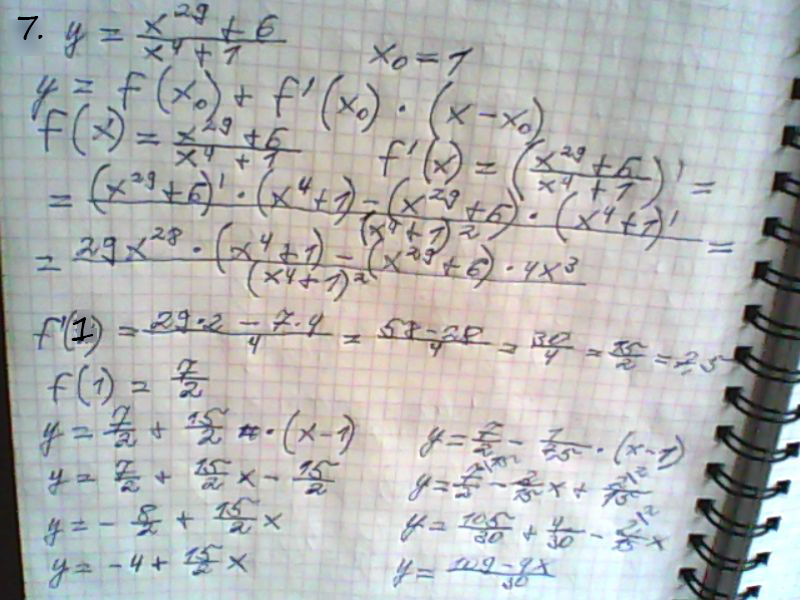 7. y = (x^29 + 6)/(x^4 + 1) x₀ = 1
y = f(x₀) + f'(x₀) · (x - x₀)
f(x) = (x^29 + 6)/(x^4 + 1) f'(x) = ((x^29 + 6)/(x^4 + 1))' =
= ((x^29 + 6)' · (x^4 + 1) - (x^29 + 6) · (x^4 + 1)')/(x^4 + 1)^2 =
= (29x^28 · (x^4 + 1) - (x^29 + 6) · 4x^3)/(x^4 + 1)^2
f'(1) = (29·2 - 7·4)/4 = (58 - 28)/4 = 30/4 = 15/2 = 7,5
f(1) = 7/2
y = 7/2 + 15/2 · (x - 1)
y = 7/2 + 15/2 x - 15/2
y = - 8/2 + 15/2 x
y = -4 + 15/2 x
y = 7/2 - 2/15 · (x - 1)
y = 7/2 - 2/15 x + 2/15
y = 105/30 + 4/30 - 2/15 x
y = (109 - 4x)/30